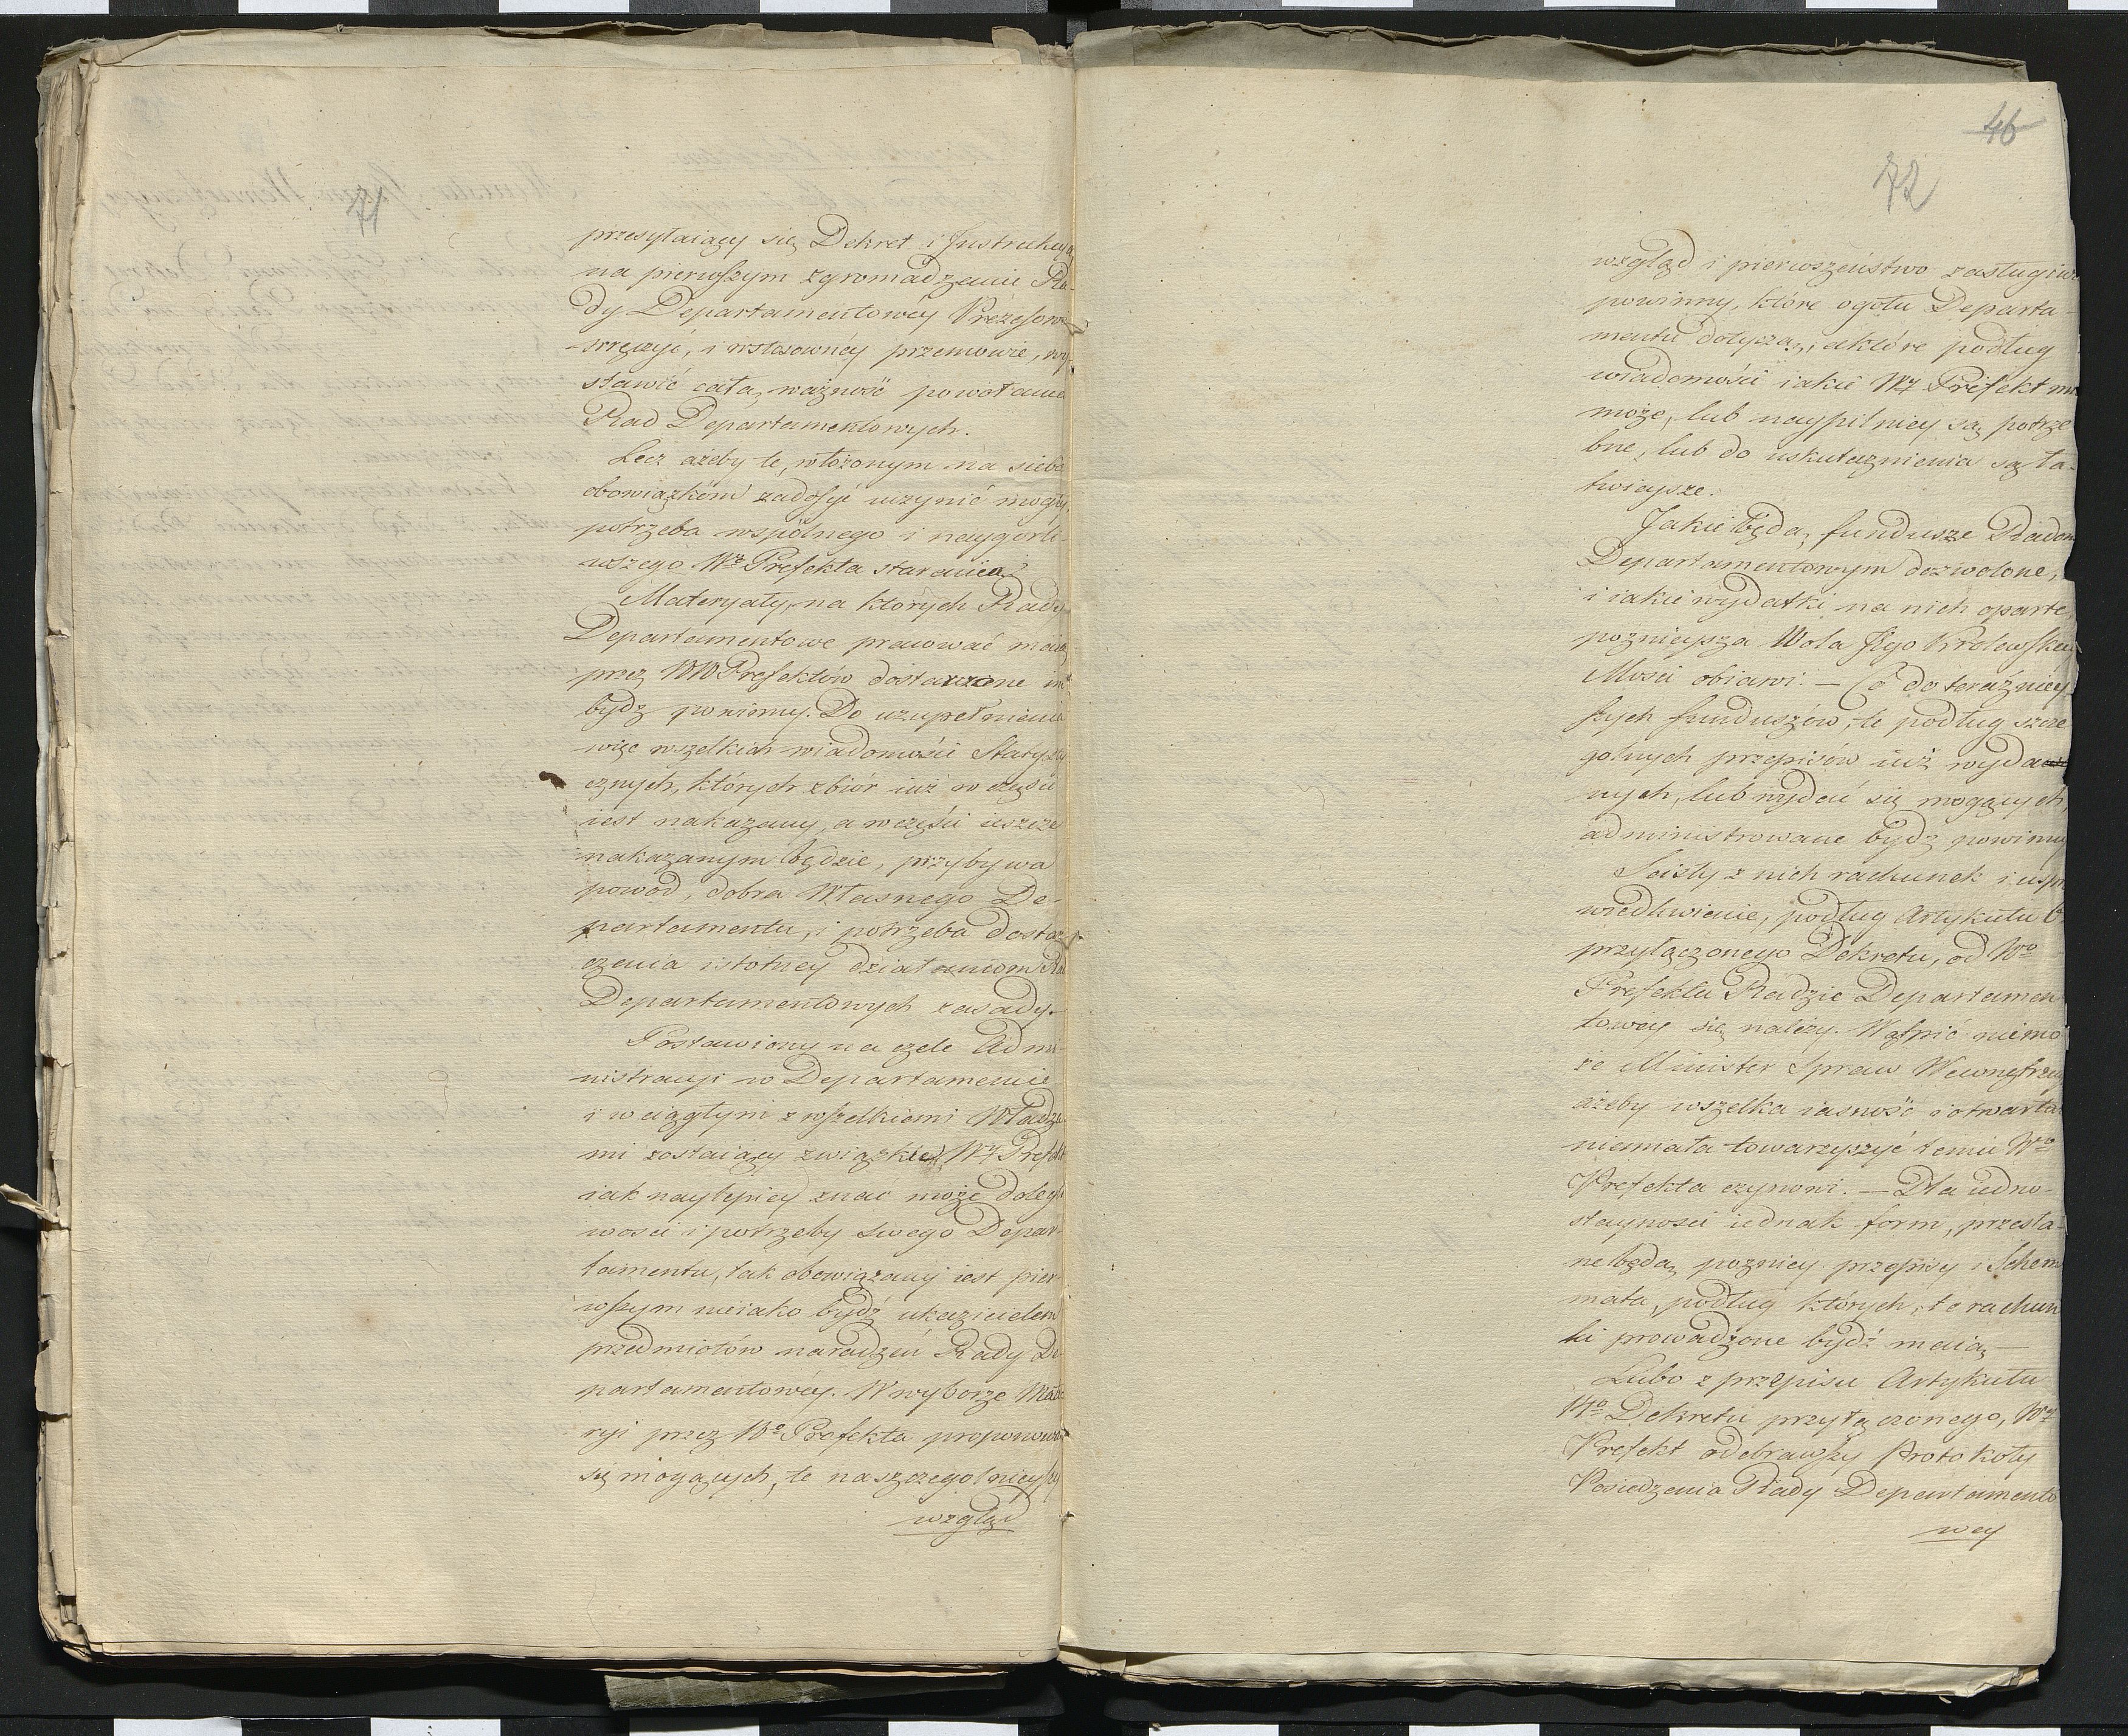 71
przesyłaiący się Dekret i Instrukcyą
na pierwszym zgromadzeniu Ra-
dy Departamentowey Prezesowi
wręczyć, i w stosowney przemowie, wy-
stawić całą ważność powołania
Rad Departamentowych.
Lecz ażeby te, włożonym na siebie
obowiązkóm zadosyć uczynić mogły,
potrzeba wspólnego i naygorli-
wszego Wgo Prefekta starania.
Materyały, na których Rady
Departamentowe pracować maią
przez WW Prefektów dostarczone im
bydź powinny. Do uzupełnienia
więc wszelkich wiadomości Statysty-
cznych, których zbiór iuż w części
iest nakazany, a w części ieszcze
nakazanym będzie, przybywa
powód, dobra Własnego De-
partamentu, i potrzeba dostar-
czenia istotney działaniom Rad
Departamentowych zasady.
Postawiony na czele Admi-
nistracyi w Departamencie
i w ciągłym z wszelkiemi Władza-
mi zostaiący związku Wy Prefekt
iak naylepiey znać może dolegli-
wości i potrzeby swego Depar-
tamentu, tak obowiązany iest pier-
wszym nieiako bydź ukazicielem
przedmiotów naradzeń Rady De-
partamentowey. W wyborze Mate-
ryi przez Wo Prefekta proponować
się mogących, te naszczególnieyszy
wzgląd
46
72
wzgląd i pierwszeństwo zasługiwać
powinny, które ogółu Departa-
mentu dotyczą, a które podług
wiadomości iakie Wy Prefekt mieć
może, lub naypilniey są potrze-
bne, lub do uskutecznienia są ła-
twieysze.
Jakie będą fundusze Radom
Departamentowym dozwolone,
i iakie wydatki na nich oparte
poźnieysza Wola Jego Krolewskiey
Mości obiawi. — Co do teraźniey-
szych funduszów, te podług szcze-
golnych przepisów iuż wyda-
nych, lub wydać się mogących,
administrowane bydź powinny
Scisły z nich rachunek i uspra-
wiedliwienie, podług Artykułu 6
przyłączonego Dekretu, od Wo
Prefekta Radzie Departamen-
towey się należy. Wątpić niemo-
że Minister Spraw Wewnętrzn:
ażeby wszelka iasność i otwartość
niemiała towarzyszyć temu Wo
Prefekta czynowi. — Dla iedno-
stayności iednak form, przesła-
ne będą poźniey przepisy i Schem-
mata, podług których, te rachun-
ki prowadzone bydź maią —
Lubo z przepisu Artykułu
Dekretu przyłączonego, Wy
Prefekt odebrawszy Protokoły
Posiedzenia Rady Departamento-
wey